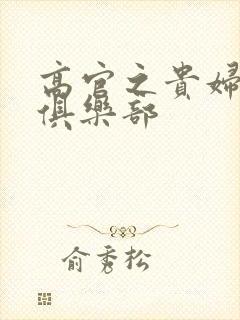 高官之貴婦
俱樂部
俞秀松